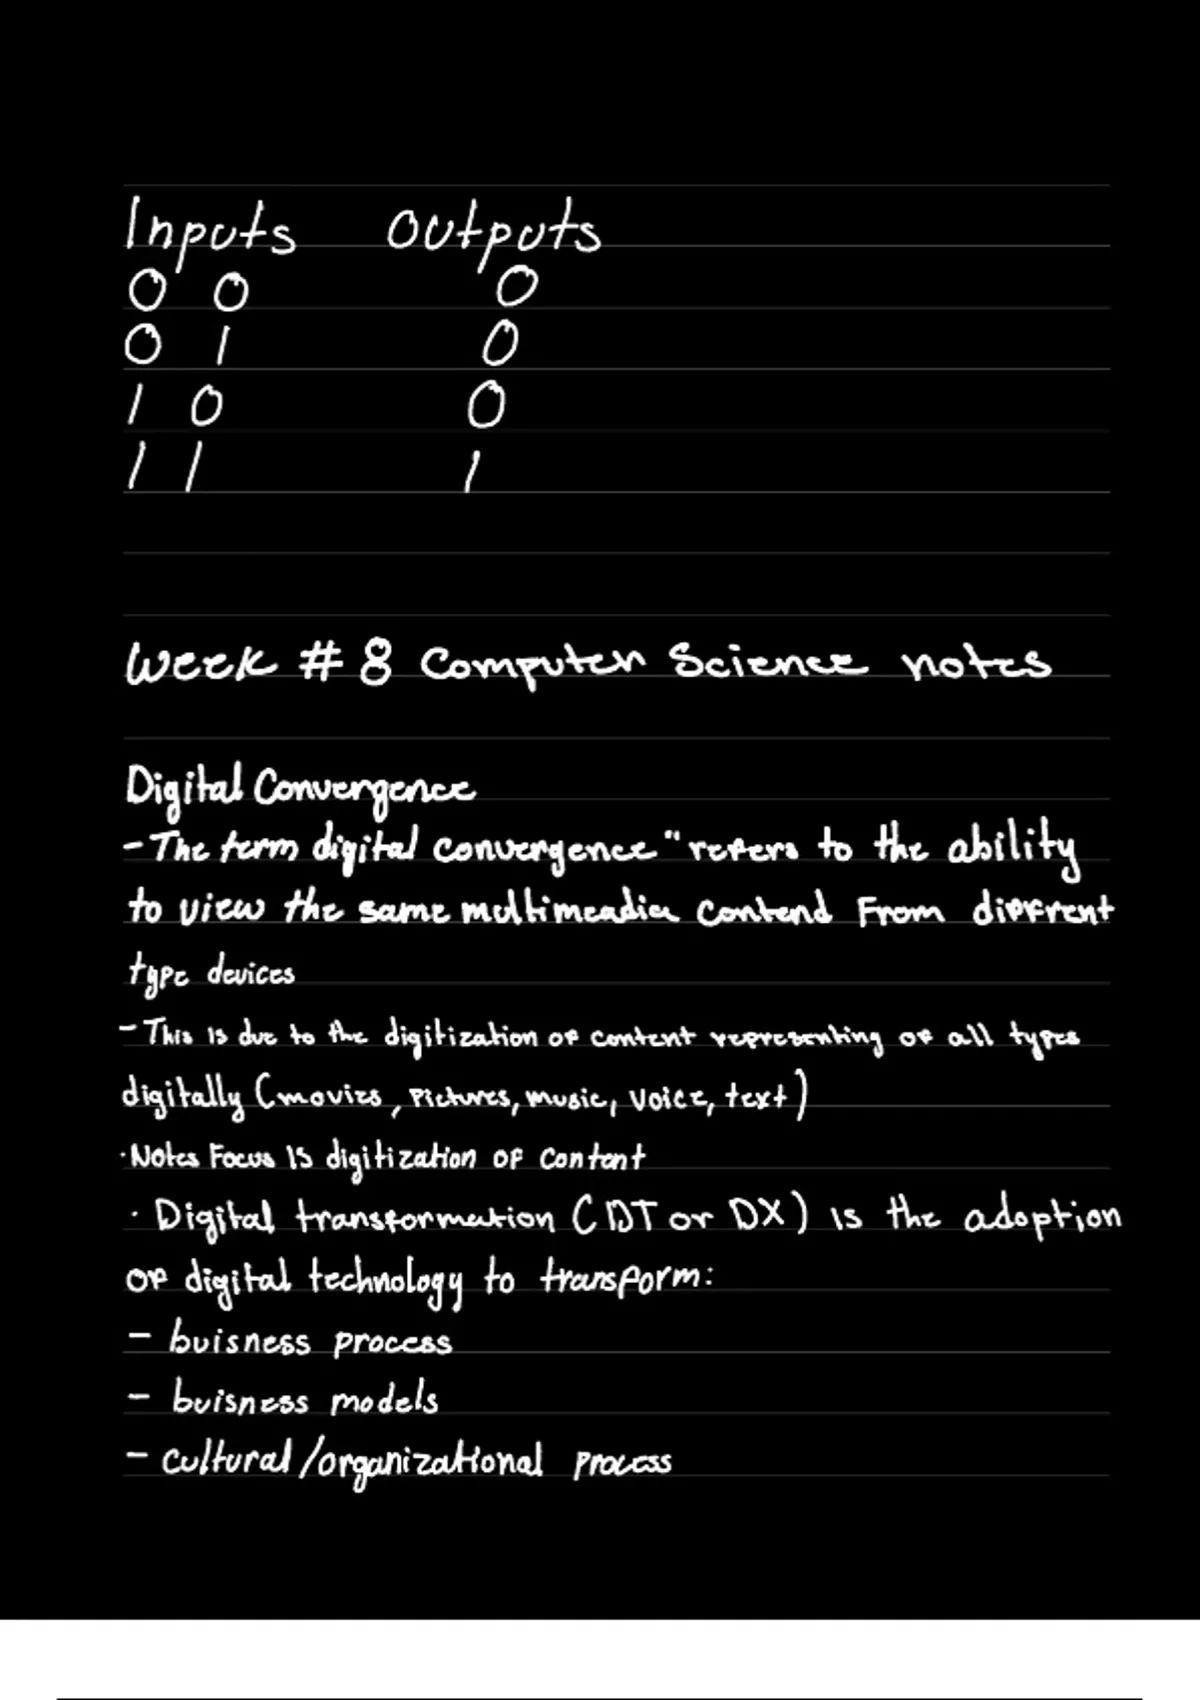 Inputs outputs
0 0 0
0 1 0
1 0 0
1 1 1
Week #8 Computer Science notes
Digital Convergence
- The term digital convergence" refers to the ability
to view the same multimeadia contend From different
type devices
- This is due to the digitization of content representing of all types
digitally (movies, Pictures, music, voice, text)
· Notes Focus is digitization of content
· Digital transformation (DT or DX) is the adoption
of digital technology to transform:
- buisness process
- buisness models
- cultural/organizational process